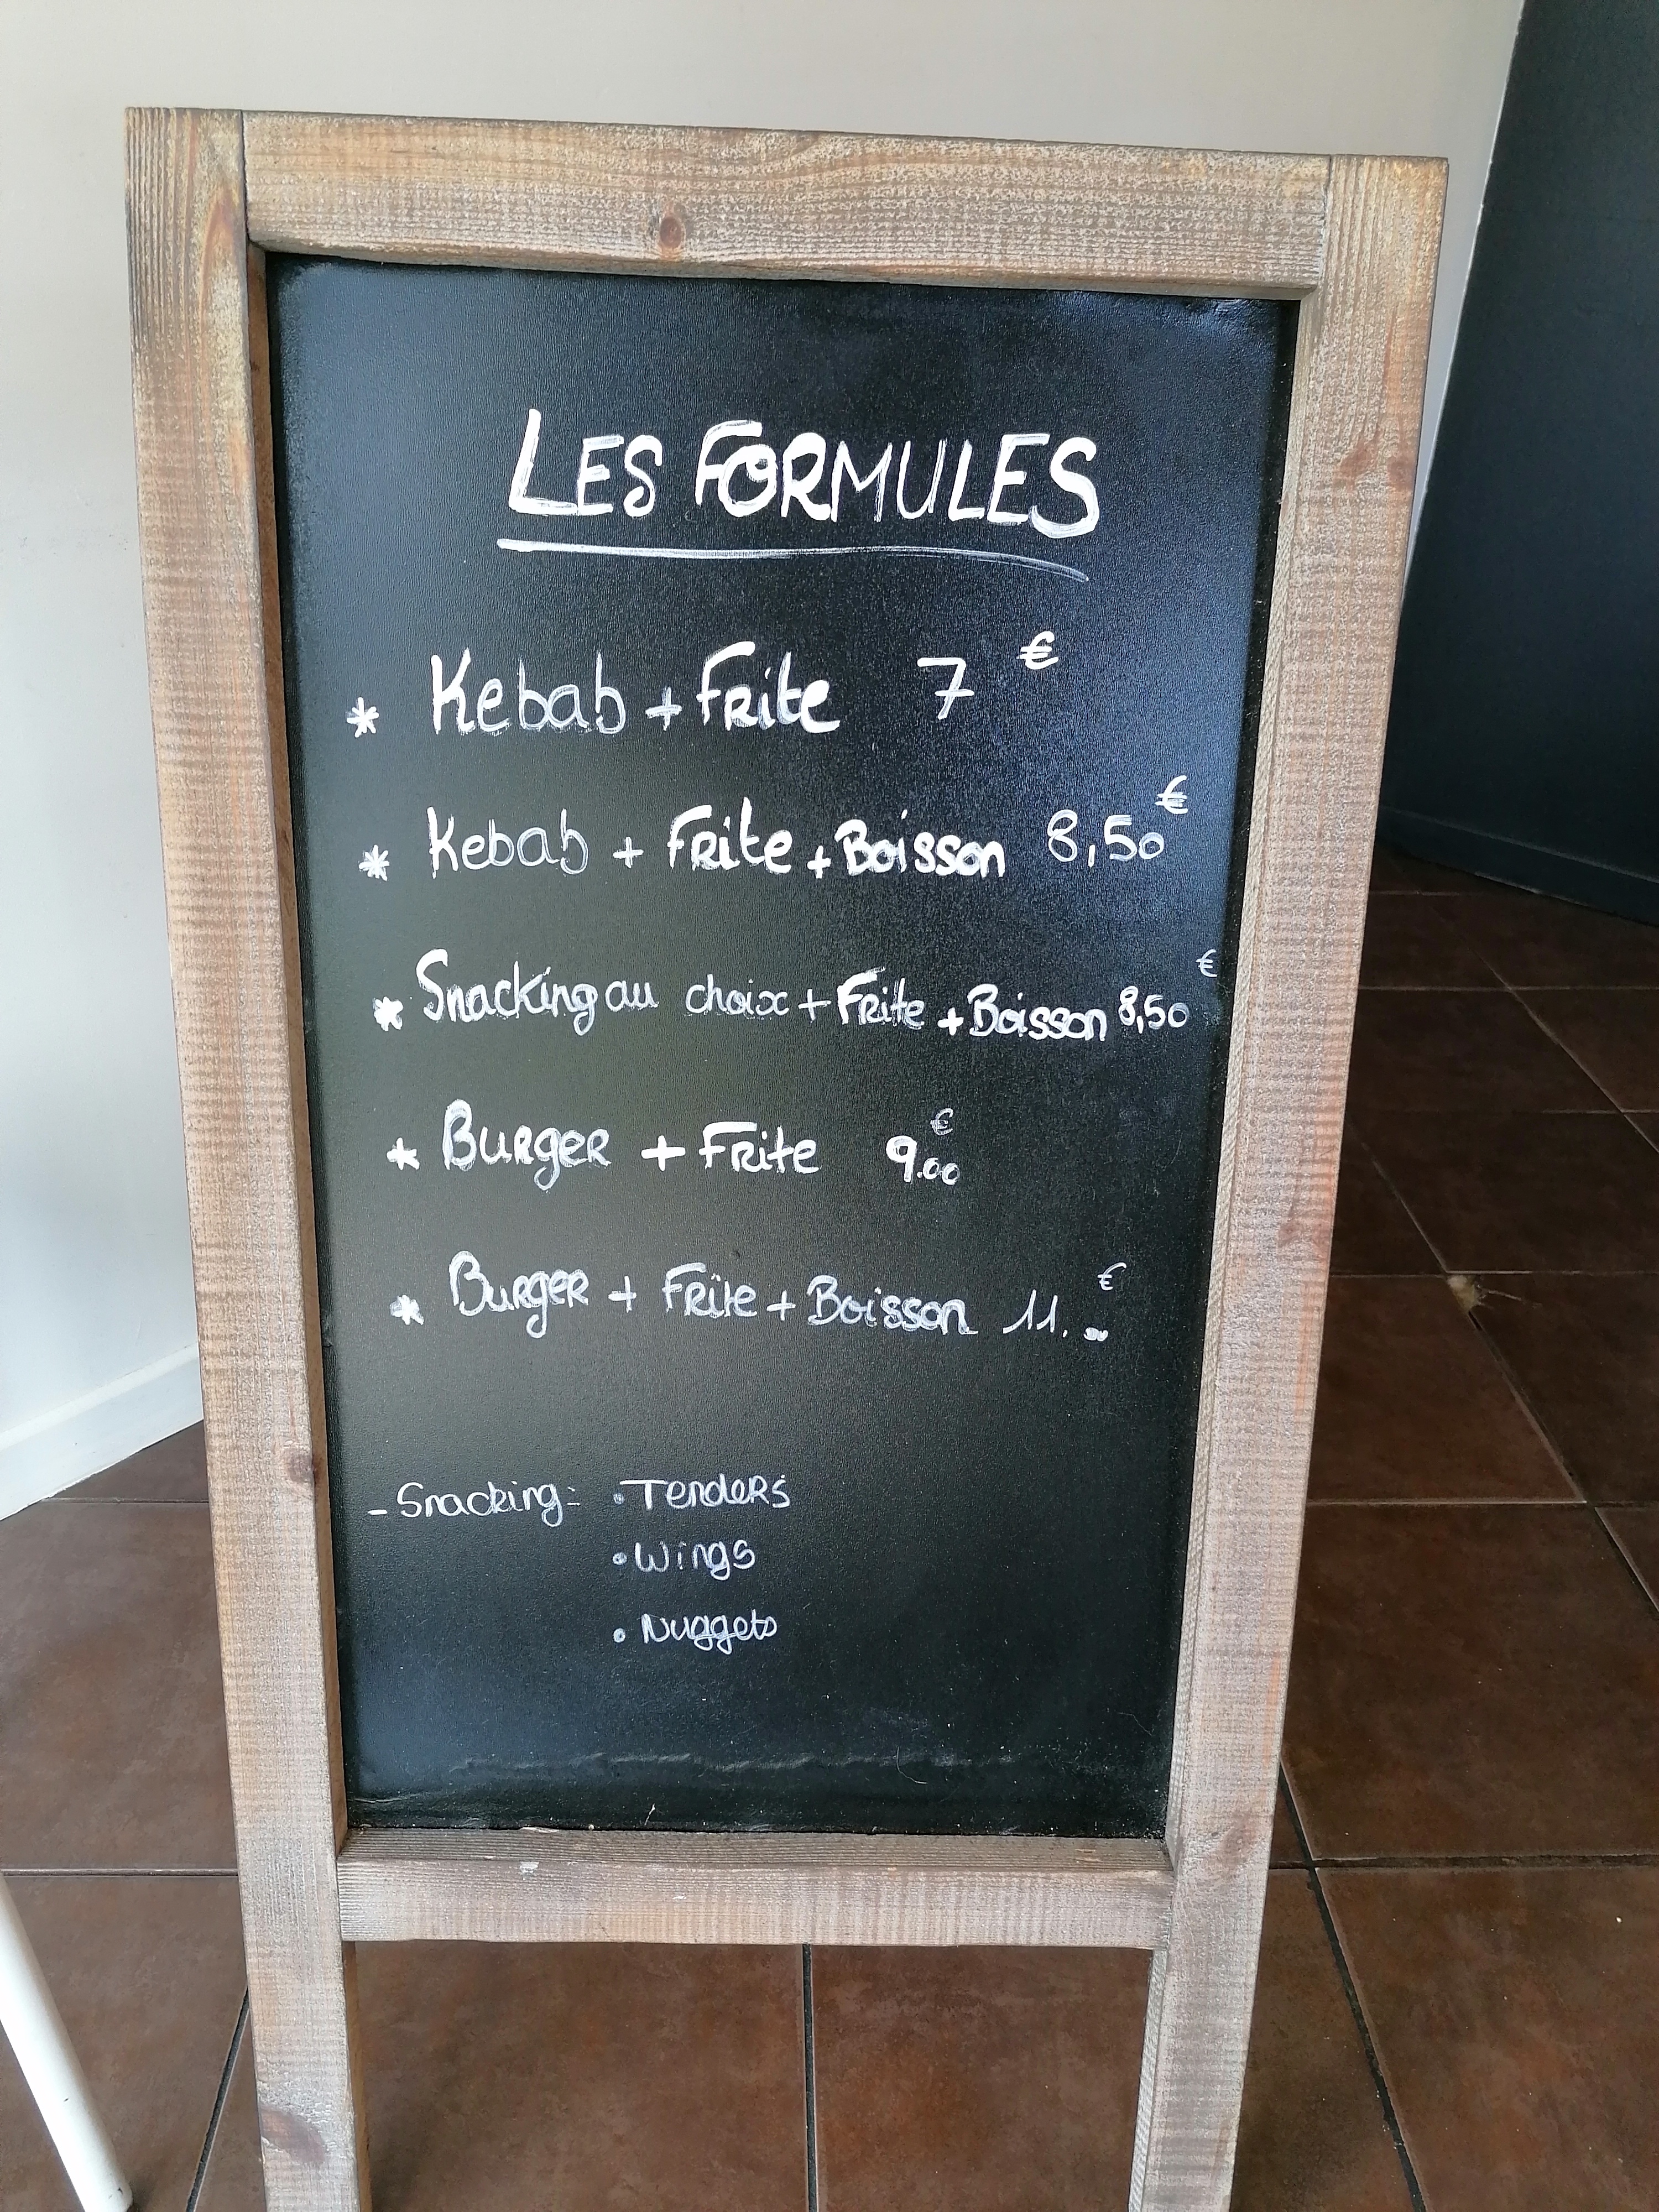 LES FORMULES
* Kebab + Frite 7 €
* Kebab + Frite + Boisson 8,50 €
* Snacking au choix + Frite + Boisson 8,50 €
* Burger + Frite 9.00 €
* Burger + Frite + Boisson 11. €
- Snacking: • Tenders
• Wings
• Nuggets